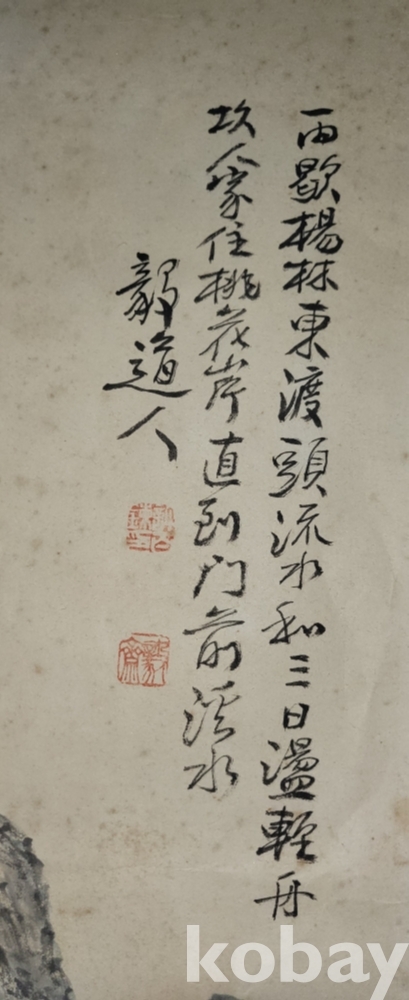 雨歇楊林東渡頭流水和三日盪輕舟
故人家住桃花岸直到門前溪水
毅道人
毅齋
kobay